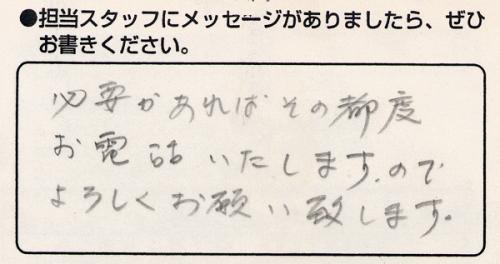 ●担当スタッフにメッセージがありましたら、ぜひ
お書きください。
必要があればその都度
お電話いたします。ので
よろしくお願い致します。